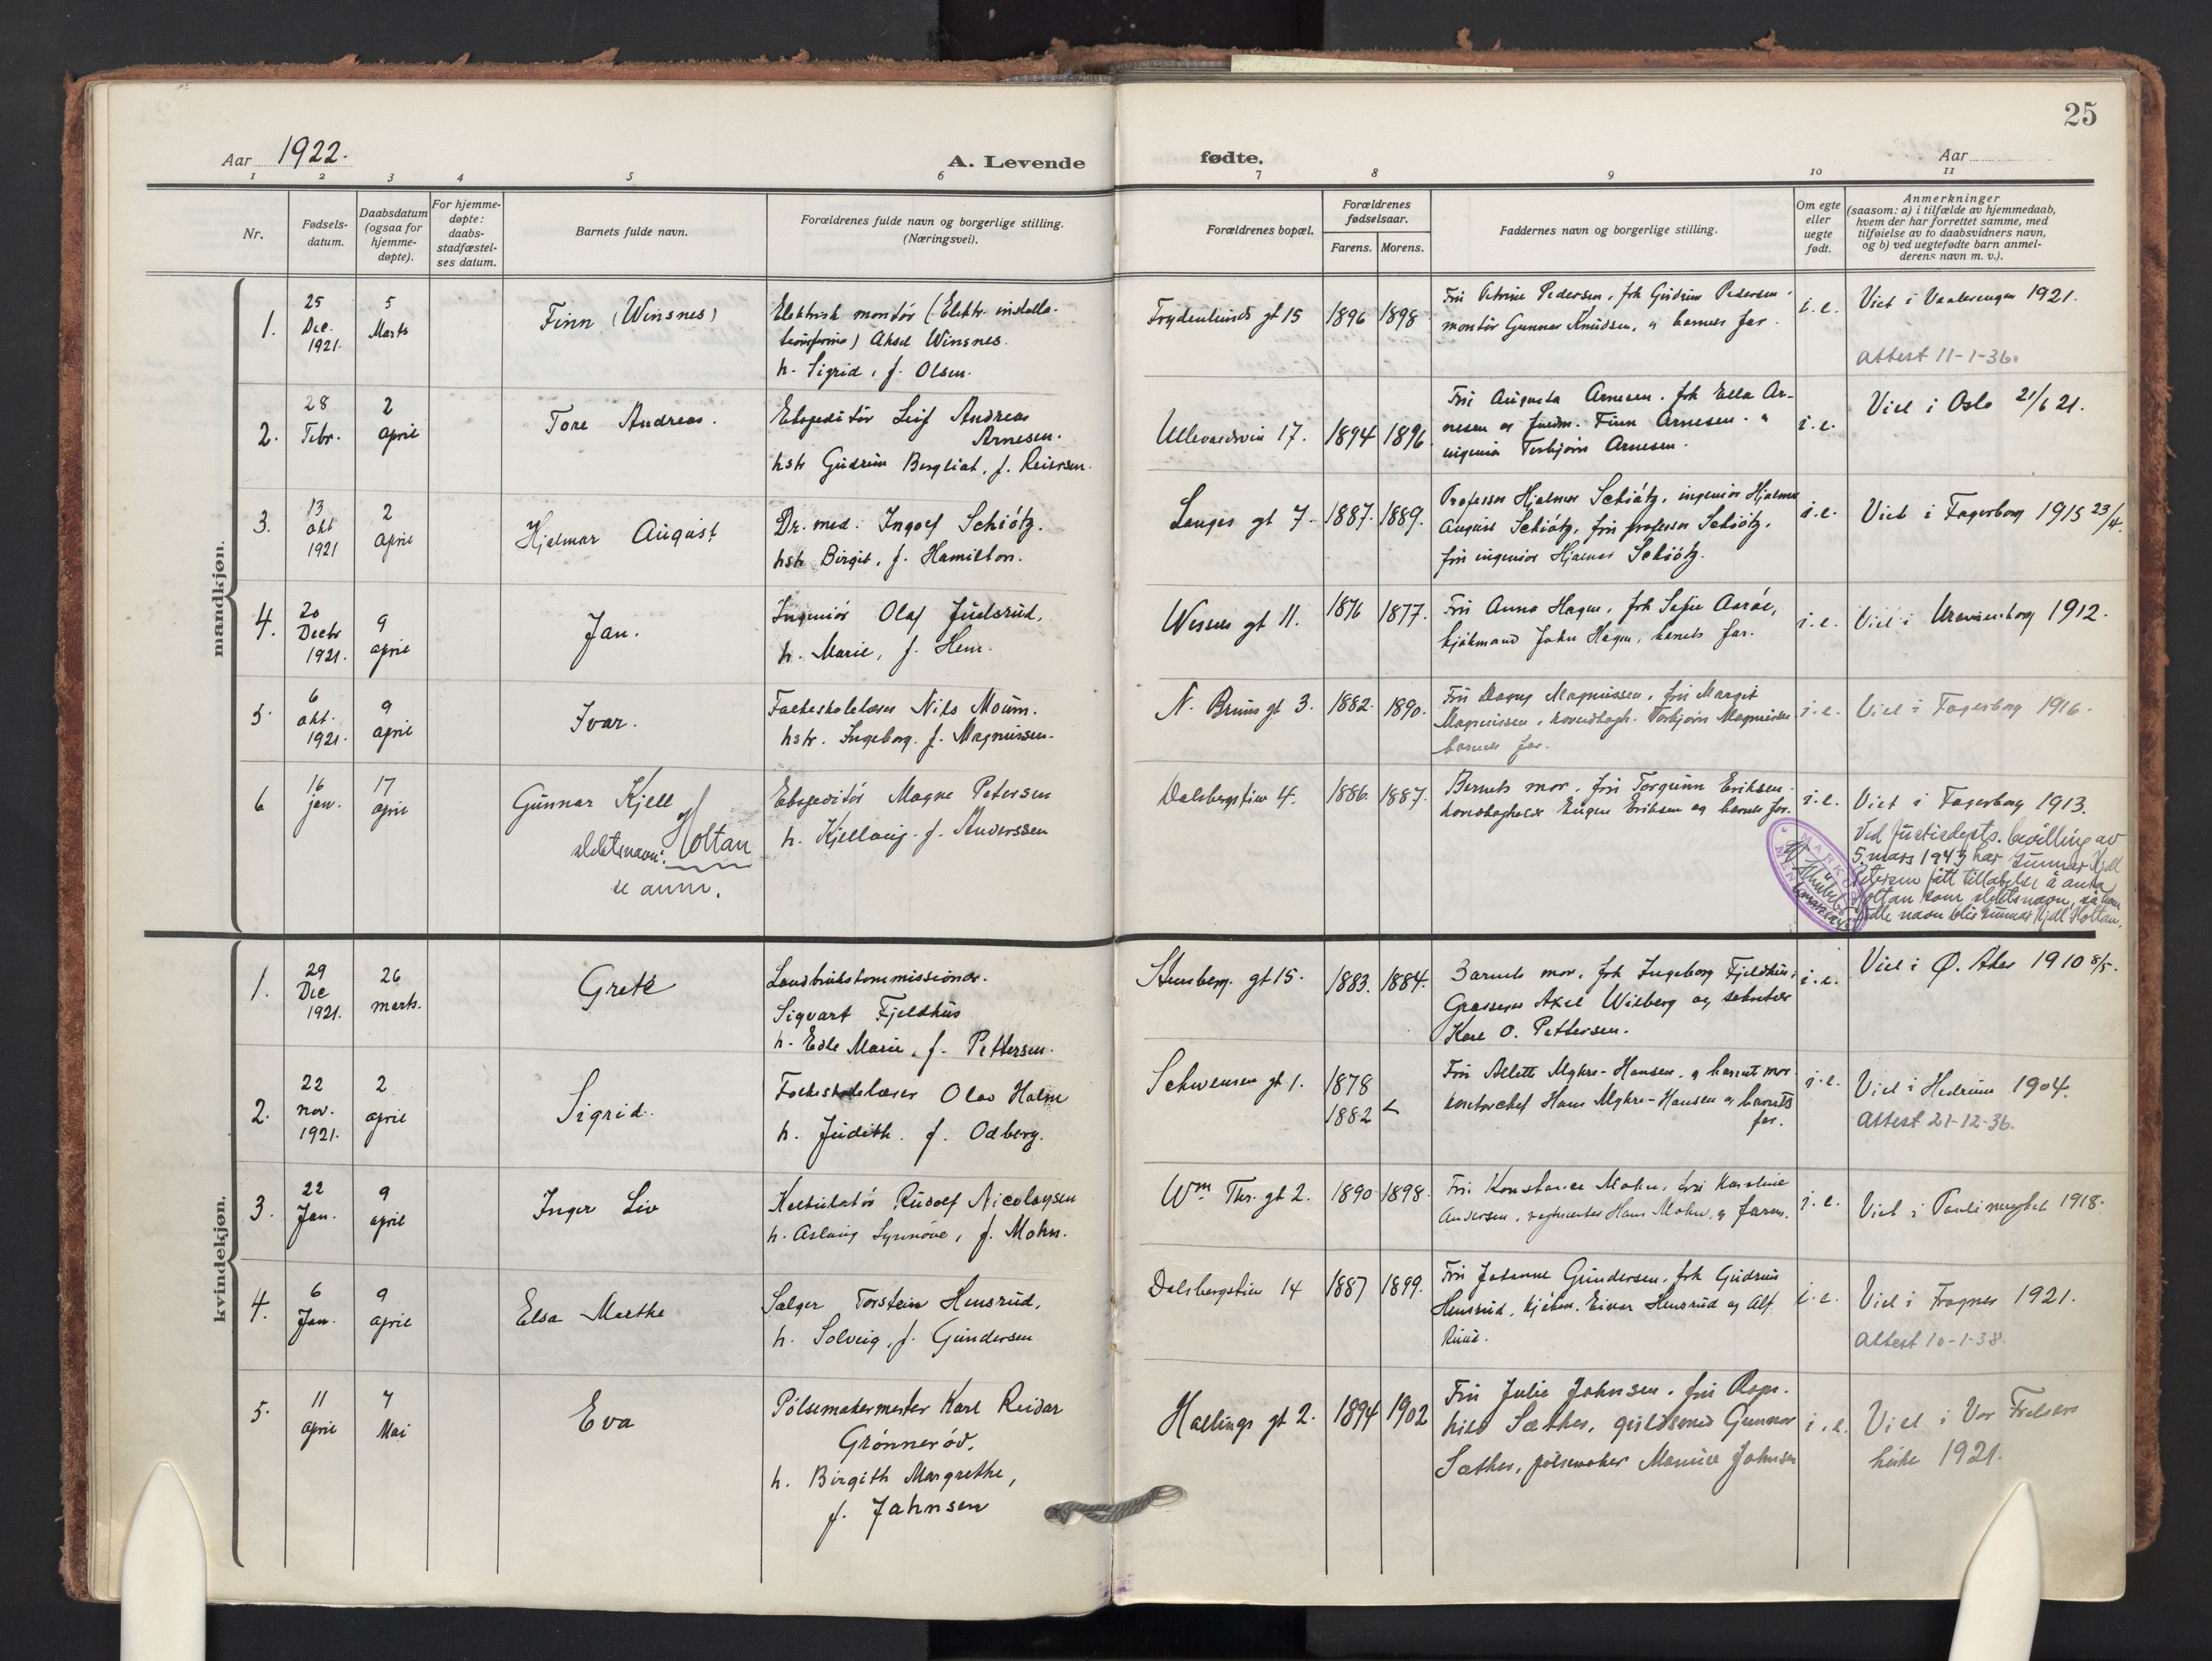 25
Aar 1922.
A. Levende
fødte.
Aar
1
2
3
4
5
6
7
8
9
10
11
Nr.
Fødsels-
datum.
Daabsdatum
(ogsaa for
hjemme-
døpte).
For hjemme-
døpte:
daabs-
stadfæstel-
ses datum.
Barnets fulde navn.
Forældrenes fulde navn og borgerlige stilling.
(Næringsvei).
Forældrenes bopæl.
Forældrenes
fødselsaar.
Farens.
Morens.
Faddernes navn og borgerlige stilling.
Om egte
eller
uegte
født.
Anmerkninger
(saasom: a) i tilfælde av hjemmedaab,
hvem der har forrettet samme, med
tilføielse av to daabsvidners navn,
og b) ved uegtefødte barn anmel-
derens navn m. v.).
mandkjøn.
1.
25
Dec.
1921.
5
Marts
Finn (Winsnes)
Elektrisk montör (Elektr. installa-
) Aksel Winsnes.
h. Sigrid, f. Olsen.
Frydenlunds gt 15
1896
1898
Fru Petrine Pedersen, frk Gudrun Pedersen
montör Gunnar Knudsen, og barnets far.
i.e.
Viet i Vaalerengen 1921.
Attest 11-1-36.
2.
28
Febr.
2
April
Tore Andreas.
Ekspeditör Leif Andreas
Arnesen.
hstr Gudrun Bergliot, f. Reiersen.
Ullevaldsvei 17.
1894
1896
Fru Augusta Arnesen. frk Ella Ar-
nesen og Finn Arnesen. og
ingeniör Torbjörn Arnesen.
i.e.
Viet i Oslo 21/6 21.
3.
13
okt
1921
2
April
Hjalmar August
Dr. med. Ingolf Schiötz.
hstr Birgit, f. Hamilton.
Langes gt 7.
1887.
1889.
Professor Hjalmar Schiötz, ingeniör Hjalmar
August Schiötz, fru professor Schiötz,
fru ingeniör Hjalmar Schiötz.
i.e.
Viet i Fagerborg 1915 23/4.
4.
20
Decbr
1921.
9
april
Jan.
Ingeniör Olaf Juelsrud,
h. Marie, f. Henr.
Wessels gt 11.
1876
1877.
Fru Anna Hagen, frk Sofie Aaröe,
kjöbmand John Hagen, barnets far.
i.e.
Viet i Uranienborg 1912.
5.
6
okt.
1921.
9
april
Ivar.
Folkeskolelærer Nils Moum.
hstr. Ingeborg f. Magnussen.
N. Bruns gt 3.
1882.
1890.
Fru Dagny Magnussen, fru Margit
Magnussen, hovedbogh. Torbjörn Magnussen
barnets far.
i.e.
Viet i Fagerborg 1916.
6
16
jan.
17
april
Gunnar Kjell
slektsnavn: Holtan
se anm.
Ekspeditör Magne Petersen
h. Kjellaug f. Anderssen
Dalsbergstien 4.
1886.
1887.
Barnets mor, fru Torgunn Eriksen
hovedbogholder Eugen Eriksen og barnets far.
i.e.
Viet i Fagerborg 1913.
Ved Justisdepts. bevilling av
5. mars 1943 har Gunnar Kjell
Petersen fått tillatelse å anta
Holtan som slektsnavn, så hans
fulle navn blir Gunnar Kjell Holtan.
MARKUS
MEN
kvindekjøn.
1.
29
Dec
1921.
26
marts.
Grete
Landbrukskommissionær.
Sigvart Fjeldhus
h. Edle Marie, f. Pettersen.
Stensberg. gt 15.
1883.
1884.
Barnets mor, frk Ingeborg Fjeldhus,
Grosserer Axel Wilberg og sekretær
Kare O. Pettersen.
i.e.
Viet i Ø. Aker 1910 8/5.
2.
22
nov.
1921.
2
april
Sigrid.
Folkeskolelærer Olav Holm
h. Judith. f. Odberg.
Schwensen gt 1.
1878
1882
Fru Aletta Myhre-Hansen, og barnets mor.
kontorchef Hans Myhre-Hansen og barnets
far.
i.e.
Viet i Hedrum 1904.
Attest 21-12-36.
3.
22
Jan.
9
april
Inger Liv
Kalkulatör Rudolf Nicolaysen
h. Aslaug Synnöve, f. Mohn.
Wm Thr. gt 2.
1890
1898.
Fru Konstance Mohn, fru Karoline
Andersen, Hans Mohn, og faren.
i.e.
Viet i Pauli menighet 1918.
4.
6
Jan.
9
april
Elsa Marthe
Selger Torstein Hensrud,
h. Solveig, f. Gundersen
Dalsbergstien 14
1887
1899.
Fru Johanne Gundersen, frk Gudrun
Hensrud, kjöbm. Einar Hensrud og Alf
Ruud.
i.e.
Viet i Frogner 1921.
Attest 10-1-38.
5.
11
april
7
Mai
Eva
Pölsemakermester Karl Reidar
Grönneröd.
h. Birgith Margrethe,
f. Johnsen
Hallings gt 2.
1894
1902
Fru Julie Johnsen, fru Ragn-
hild Sæther, guldsmed Gunnar
Sæther, pölsemaker Maurice Johnsen
i.e.
Viet i Vor Frelsers
kirke 1921.